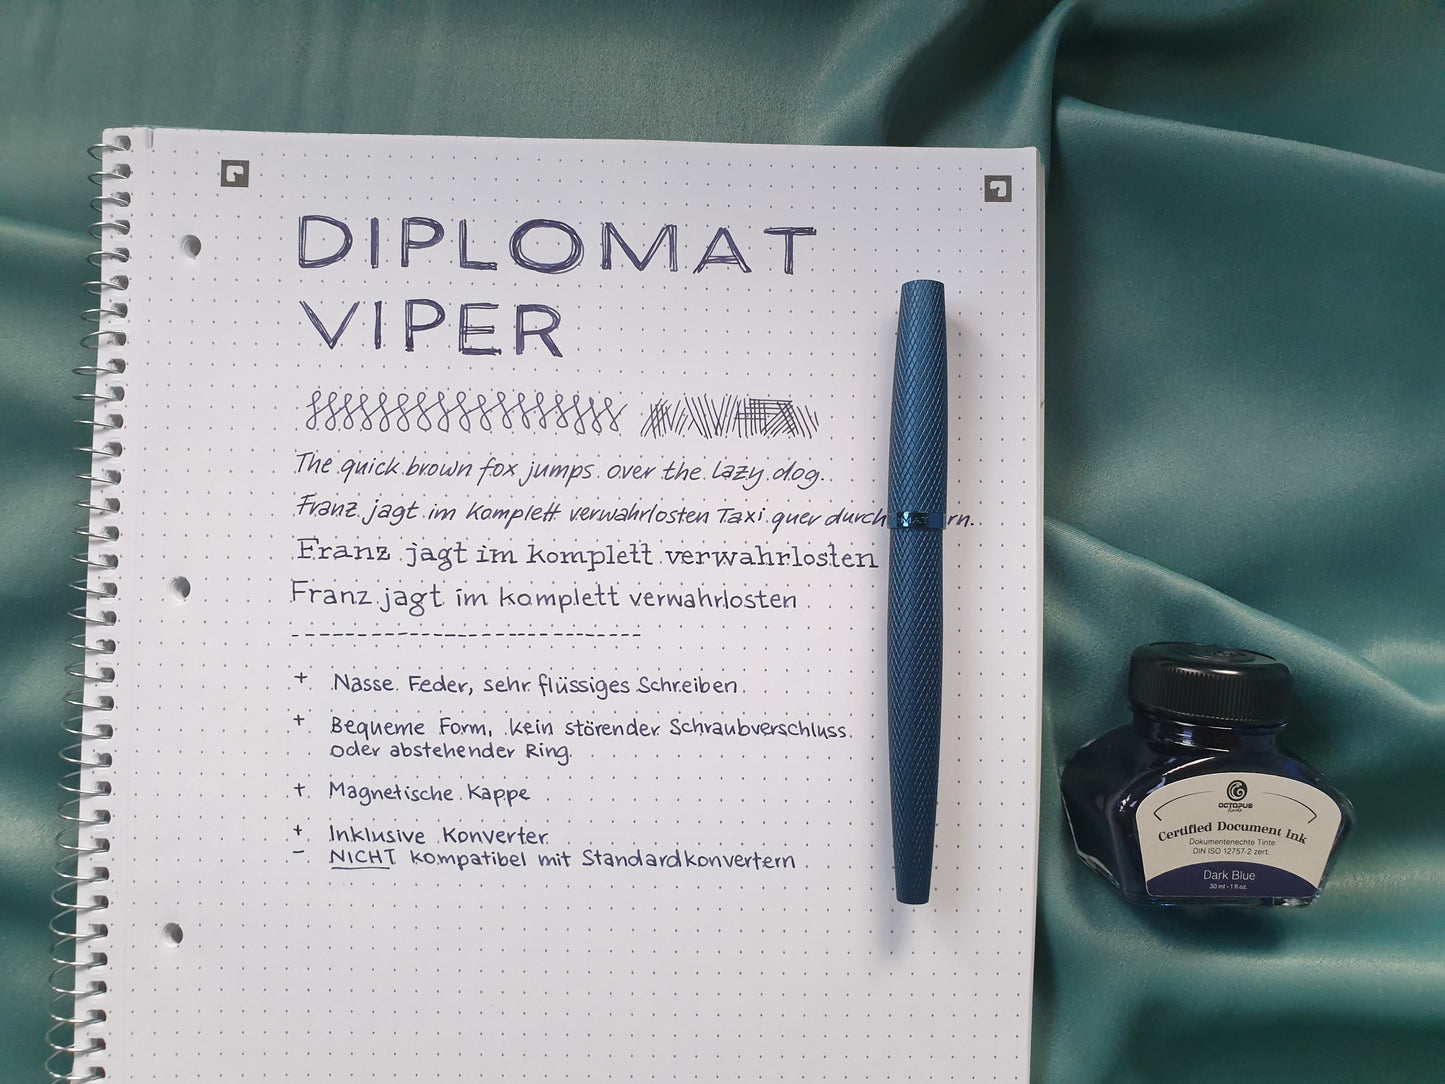 DIPLOMAT
VIPER
The quick brown fox jumps over the lazy dog.
Franz jagt im komplett verwahrlosten Taxi quer durch rn.
Franz jagt im komplett verwahrlosten
Franz jagt im komplett verwahrlosten
+ Nasse Feder, sehr flüssiges Schreiben
+ Bequeme Form, kein störender Schraubverschluss
oder abstehender Ring
+ Magnetische Kappe
+ Inklusive Konverter
- NICHT kompatibel mit Standardkonvertern
OCTOPUS
Certified Document Ink
Dokumentenechte Tinte
DIN ISO 12757-2 zert.
Dark Blue
30 ml - 1 fl.oz.